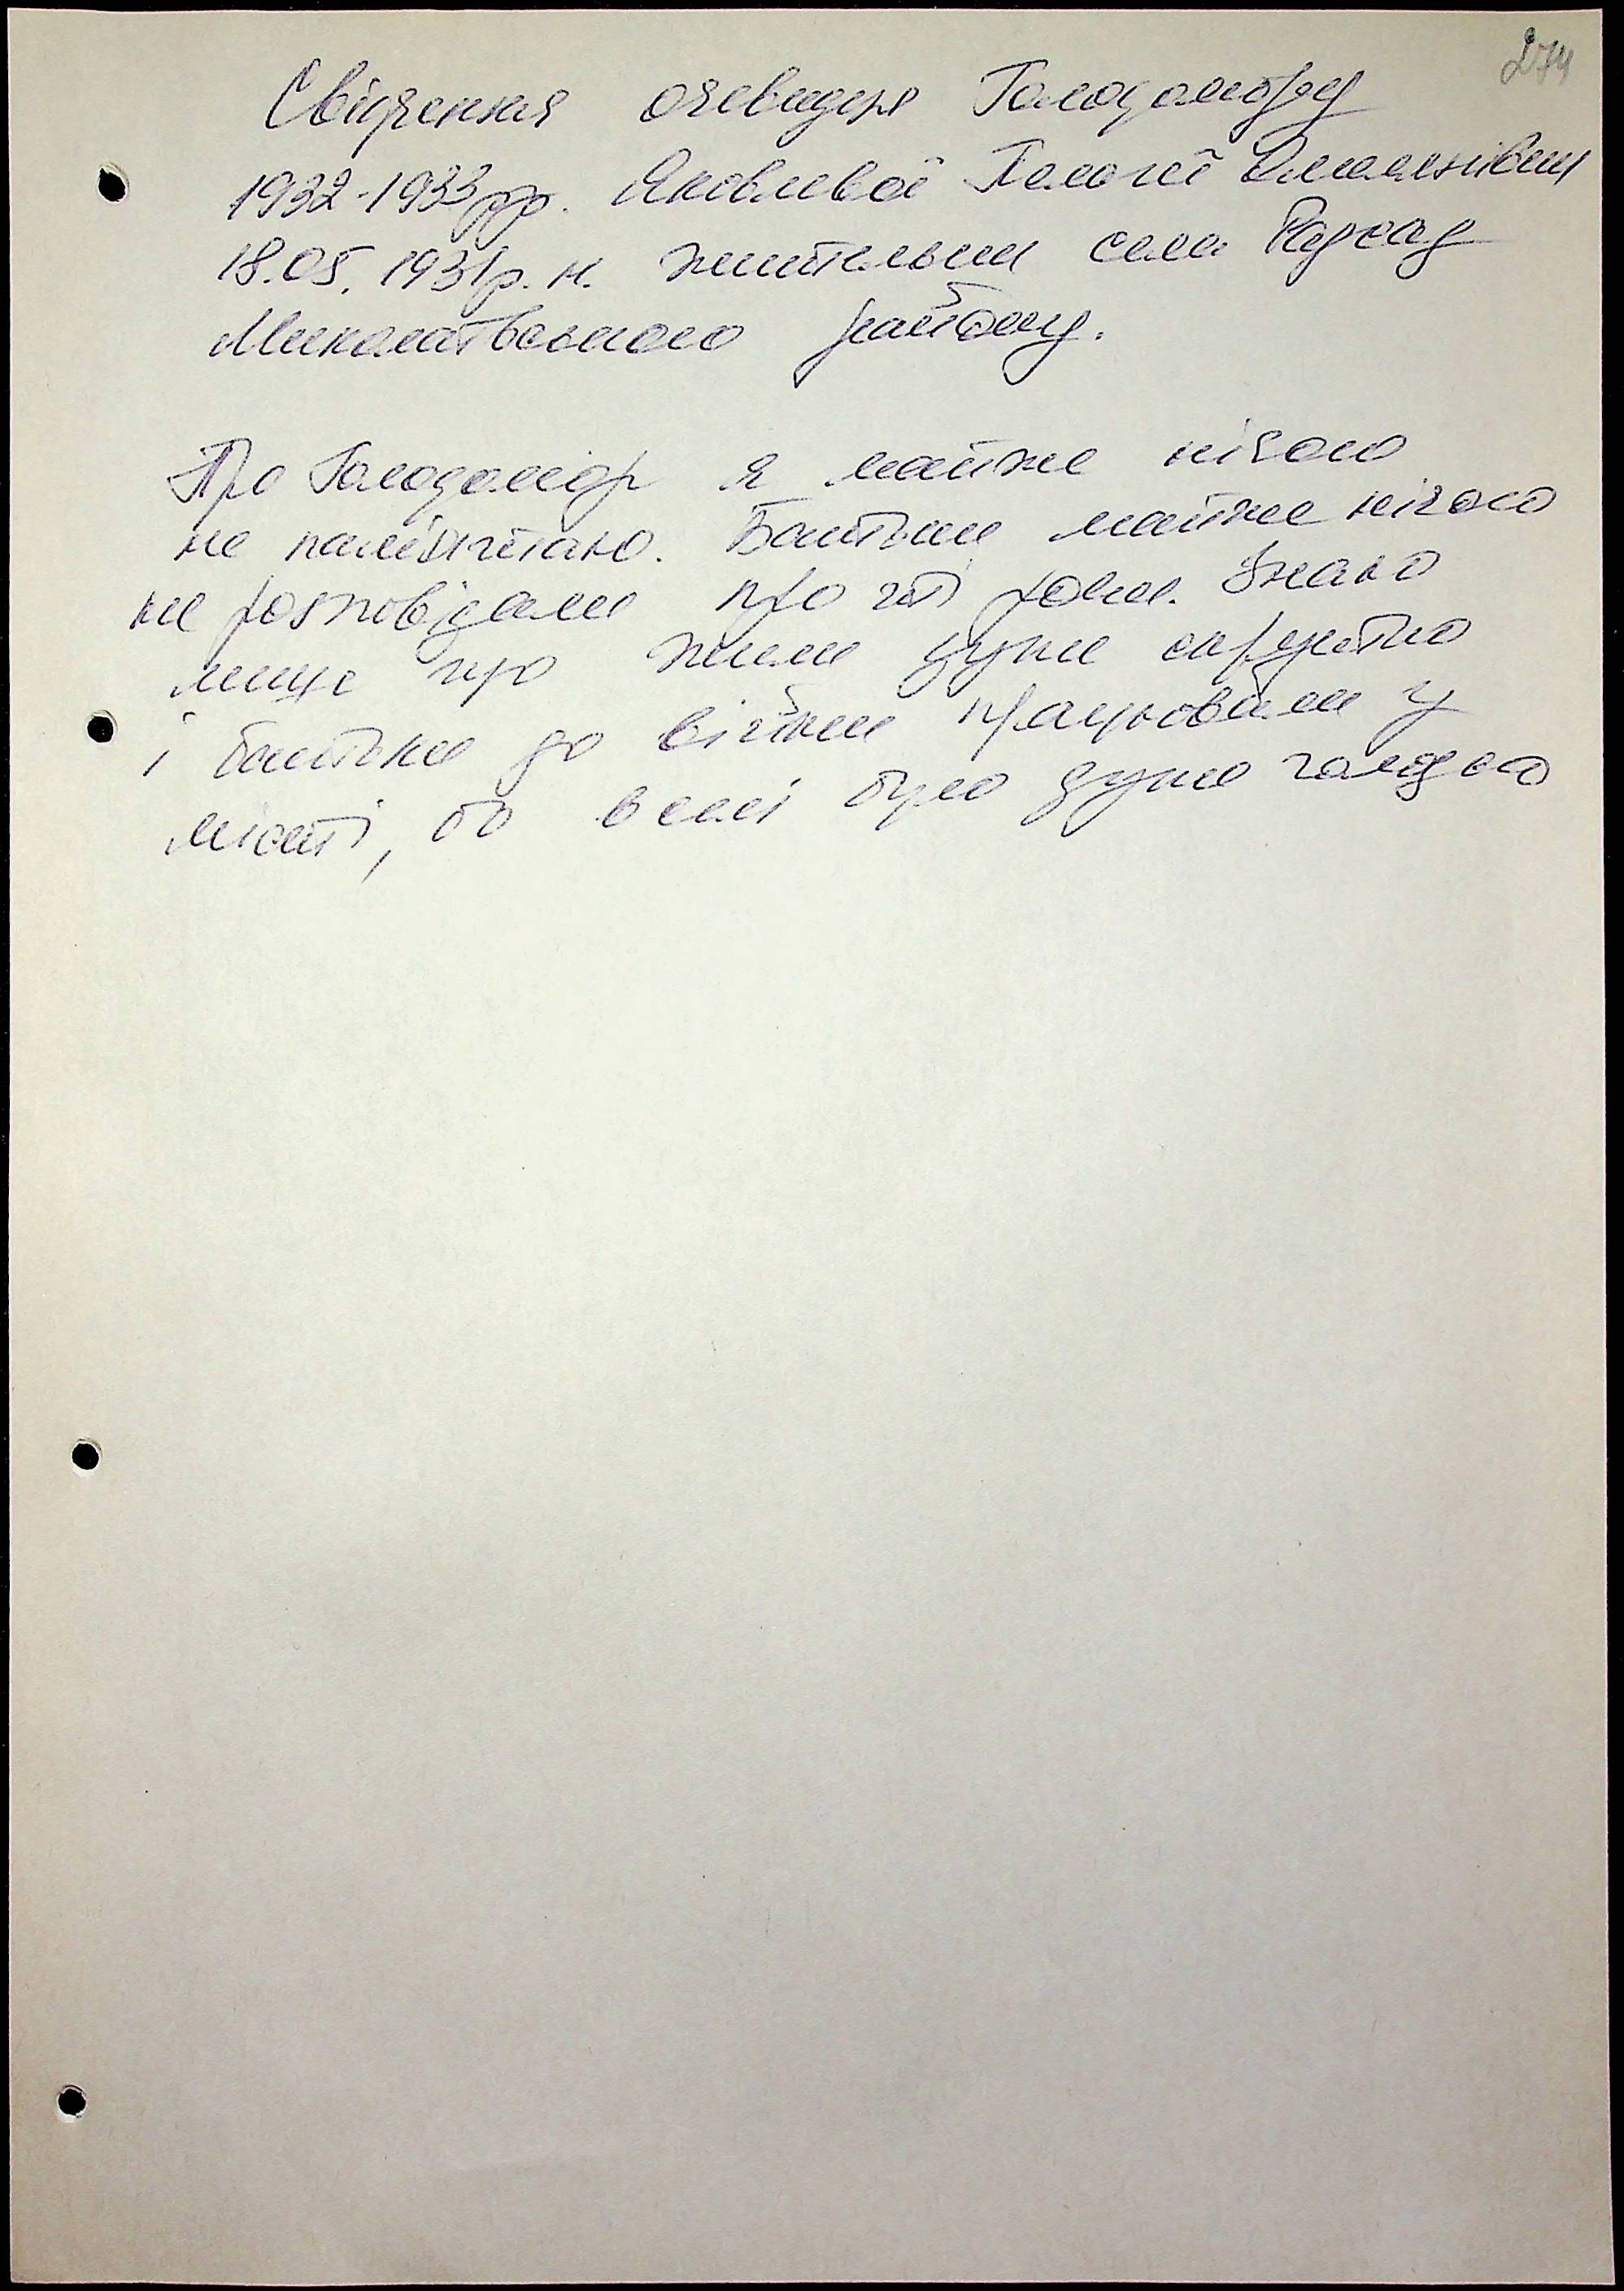 274
Свідчення очевидця Голодомору
1932-1933 рр. Яковлевої Пелагеї Омелянівни
18.05.1931 р. н. жительки села Радсад
Миколаївського району.
Про Голодомор я майже нічого
не пам'ятаю. Батьки майже нічого
не розповідали про ті роки. Знаю
лише що жили дуже скрутно
і батьки до війни працювали у
місті, бо в селі було дуже голодно